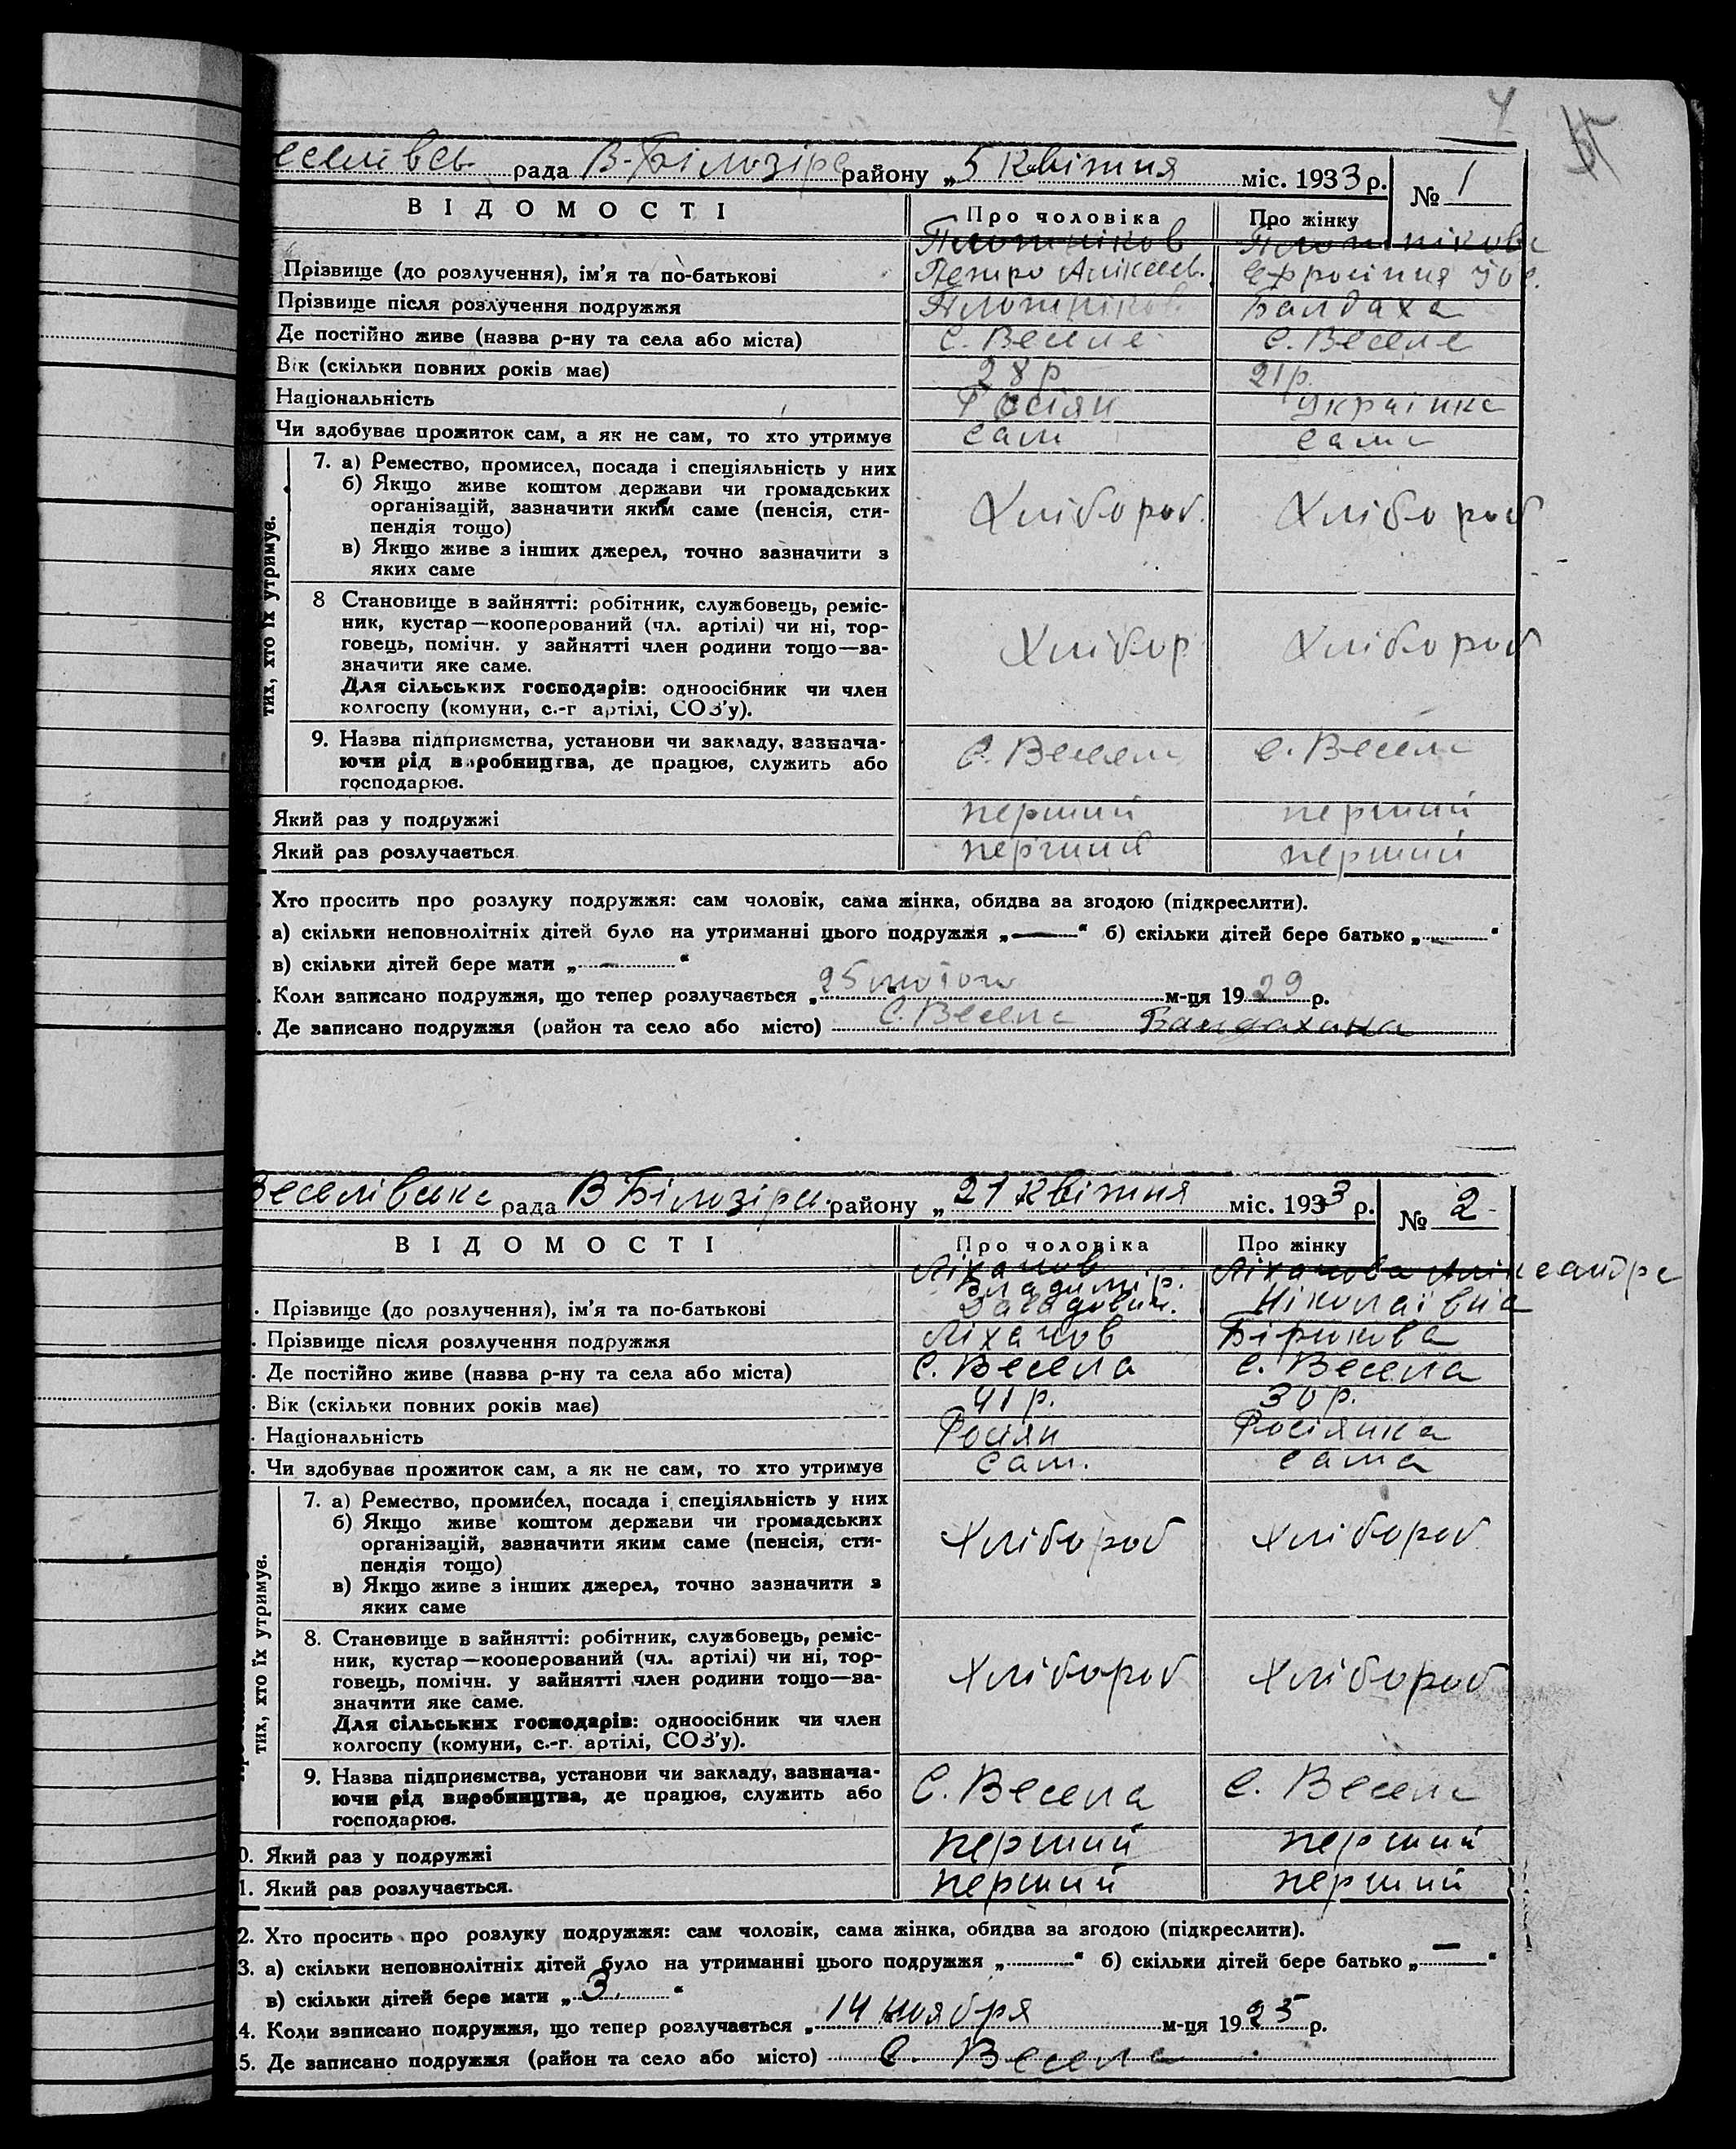 еселівсь. рада В-Білозірс району „5 квітня міс. 1933 р. № 1
ВІДОМОСТІ Про чоловіка Про жінку
Плотніков Плотнікова
Прізвище (до розлучення), ім'я та по-батькові Петро Аліксеев. Єфросиння
Прізвище після розлучення подружжя Плотніков Балдаха
Де постійно живе (назва р-ну та села або міста) С. Веселе С. Веселе
Вік (скільки повних років має) 28 р 21 р.
Національність Росіян Українка
Чи здобуває прожиток сам, а як не сам, то хто утримує сам сама
тих, хто їх утримує.
7. а) Ремество, промисел, посада і спеціяльність у них
б) Якщо живе коштом держави чи громадських
організацій, зазначити яким саме (пенсія, сти- Хлібороб. Хлібороб
пендія тощо)
в) Якщо живе з інших джерел, точно зазначити з
яких саме
8 Становище в зайнятті: робітник, службовець, реміс-
ник, кустар—кооперований (чл. артілі) чи ні, тор-
говець, помічн. у зайнятті член родини тощо—за- Хлібор Хлібороб
значити яке саме.
Для сільських господарів: одноосібник чи член
колгоспу (комуни, с.-г артілі, СОЗ'у).
9. Назва підприємства, установи чи закладу, зазнача-
ючи рід виробництва, де працює, служить або С. Веселе С. Веселе
господарює.
Який раз у подружжі перший перший
Який раз розлучається перший перший
Хто просить про розлуку подружжя: сам чоловік, сама жінка, обидва за згодою (підкреслити).
а) скільки неповнолітніх дітей було на утриманні цього подружжя „—“ б) скільки дітей бере батько „—“
в) скільки дітей бере мати „—“
Коли записано подружжя, що тепер розлучається „25 лютого м-ця 1929 р.
Де записано подружжя (район та село або місто) С. Веселе Бандахана
Веселівська рада В Білозірсь. району „21 квітня міс. 1933 р. № 2
ВІДОМОСТІ Про чоловіка Про жінку
Ліханов Ліханова Аліксандра
Владимір.
. Прізвище (до розлучення), ім'я та по-батькові Ніколаївна
. Прізвище після розлучення подружжя Ліханов Бірюкова
. Де постійно живе (назва р-ну та села або міста) С. Весела С. Весела
. Вік (скільки повних років має) 41 р. 30 р.
. Національність Росіян Росіянка
. Чи здобуває прожиток сам, а як не сам, то хто утримує сам. сама
тих, хто їх утримує.
7. а) Ремество, промисел, посада і спеціяльність у них
б) Якщо живе коштом держави чи громадських
організацій, зазначити яким саме (пенсія, сти- Хлібороб Хлібороб
пендія тощо)
в) Якщо живе з інших джерел, точно зазначити з
яких саме
8. Становище в зайнятті: робітник, службовець, реміс-
ник, кустар—кооперований (чл. артілі) чи ні, тор-
говець, помічн. у зайнятті член родини тощо—за- Хлібороб Хлібороб
значити яке саме.
Для сільських господарів: одноосібник чи член
колгоспу (комуни, с.-г. артілі, СОЗ'у).
9. Назва підприємства, установи чи закладу, зазнача-
ючи рід виробництва, де працює, служить або С. Весела С. Весела
господарює.
0. Який раз у подружжі перший перший
1. Який раз розлучається. перший перший
2. Хто просить про розлуку подружжя: сам чоловік, сама жінка, обидва за згодою (підкреслити).
3. а) скільки неповнолітніх дітей було на утриманні цього подружжя „“ б) скільки дітей бере батько „—“
в) скільки дітей бере мати „3.“
4. Коли записано подружжя, що тепер розлучається „14 ноября м-ця 1925 р.
5. Де записано подружжя (район та село або місто) С. Весела